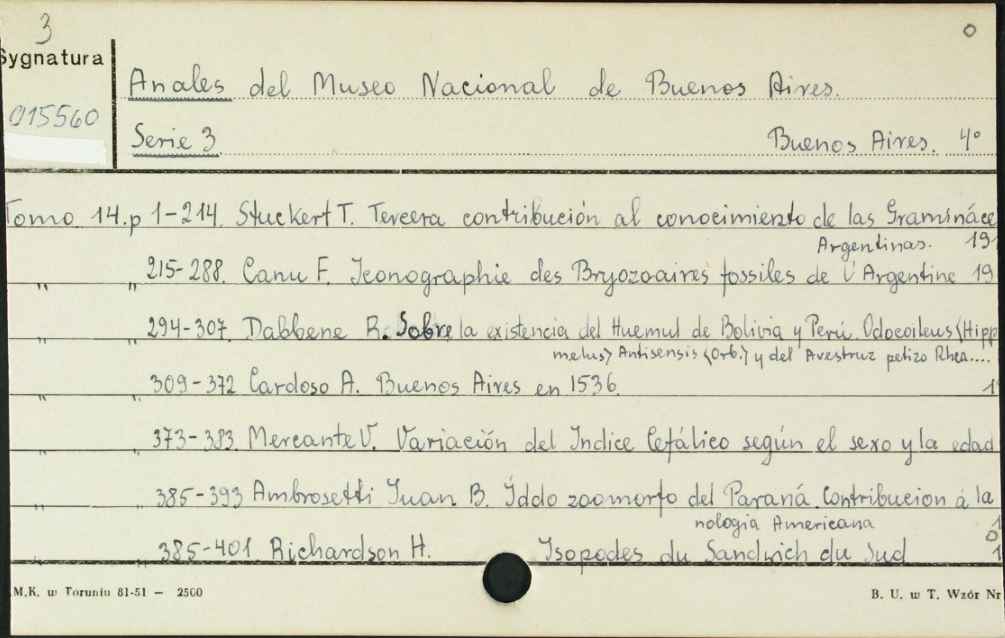 3
Sygnatura
015560
Anales del Museo Nacional de Buenos Aires.
Serie 3 Buenos Aires. 4°
Tomo 14.p 1-214. Stuckert T. Tercera contribución al conocimiento de las Graminácе
Argentinas. 19
" " 215-288. Canu F. Iconographie des Bryozoaires fossiles de l'Argentine 19
" " 294-307. Dabbene R. Sobre la existencia del Huemul de Bolivia y Perú. Odocoileus (Hipp
melus) Antisensis (Orb.) y del Avestruz petizo Rhea....
" " 309-372 Cardoso A. Buenos Aires en 1536. 1
" " 373-383. Mercante V. Variación del Indice Cefálico según el sexo y la edad
" " 385-393 Ambrosetti Juan B. Iddo zoomorfo del Paraná. Contribucion á la
nologia Americana
" " 385-401. Richardson H. Isopodes du Sandwich du Sud 1
M.K. w Toruniu 81-51 — 2500
B. U. w T. Wzór Nr